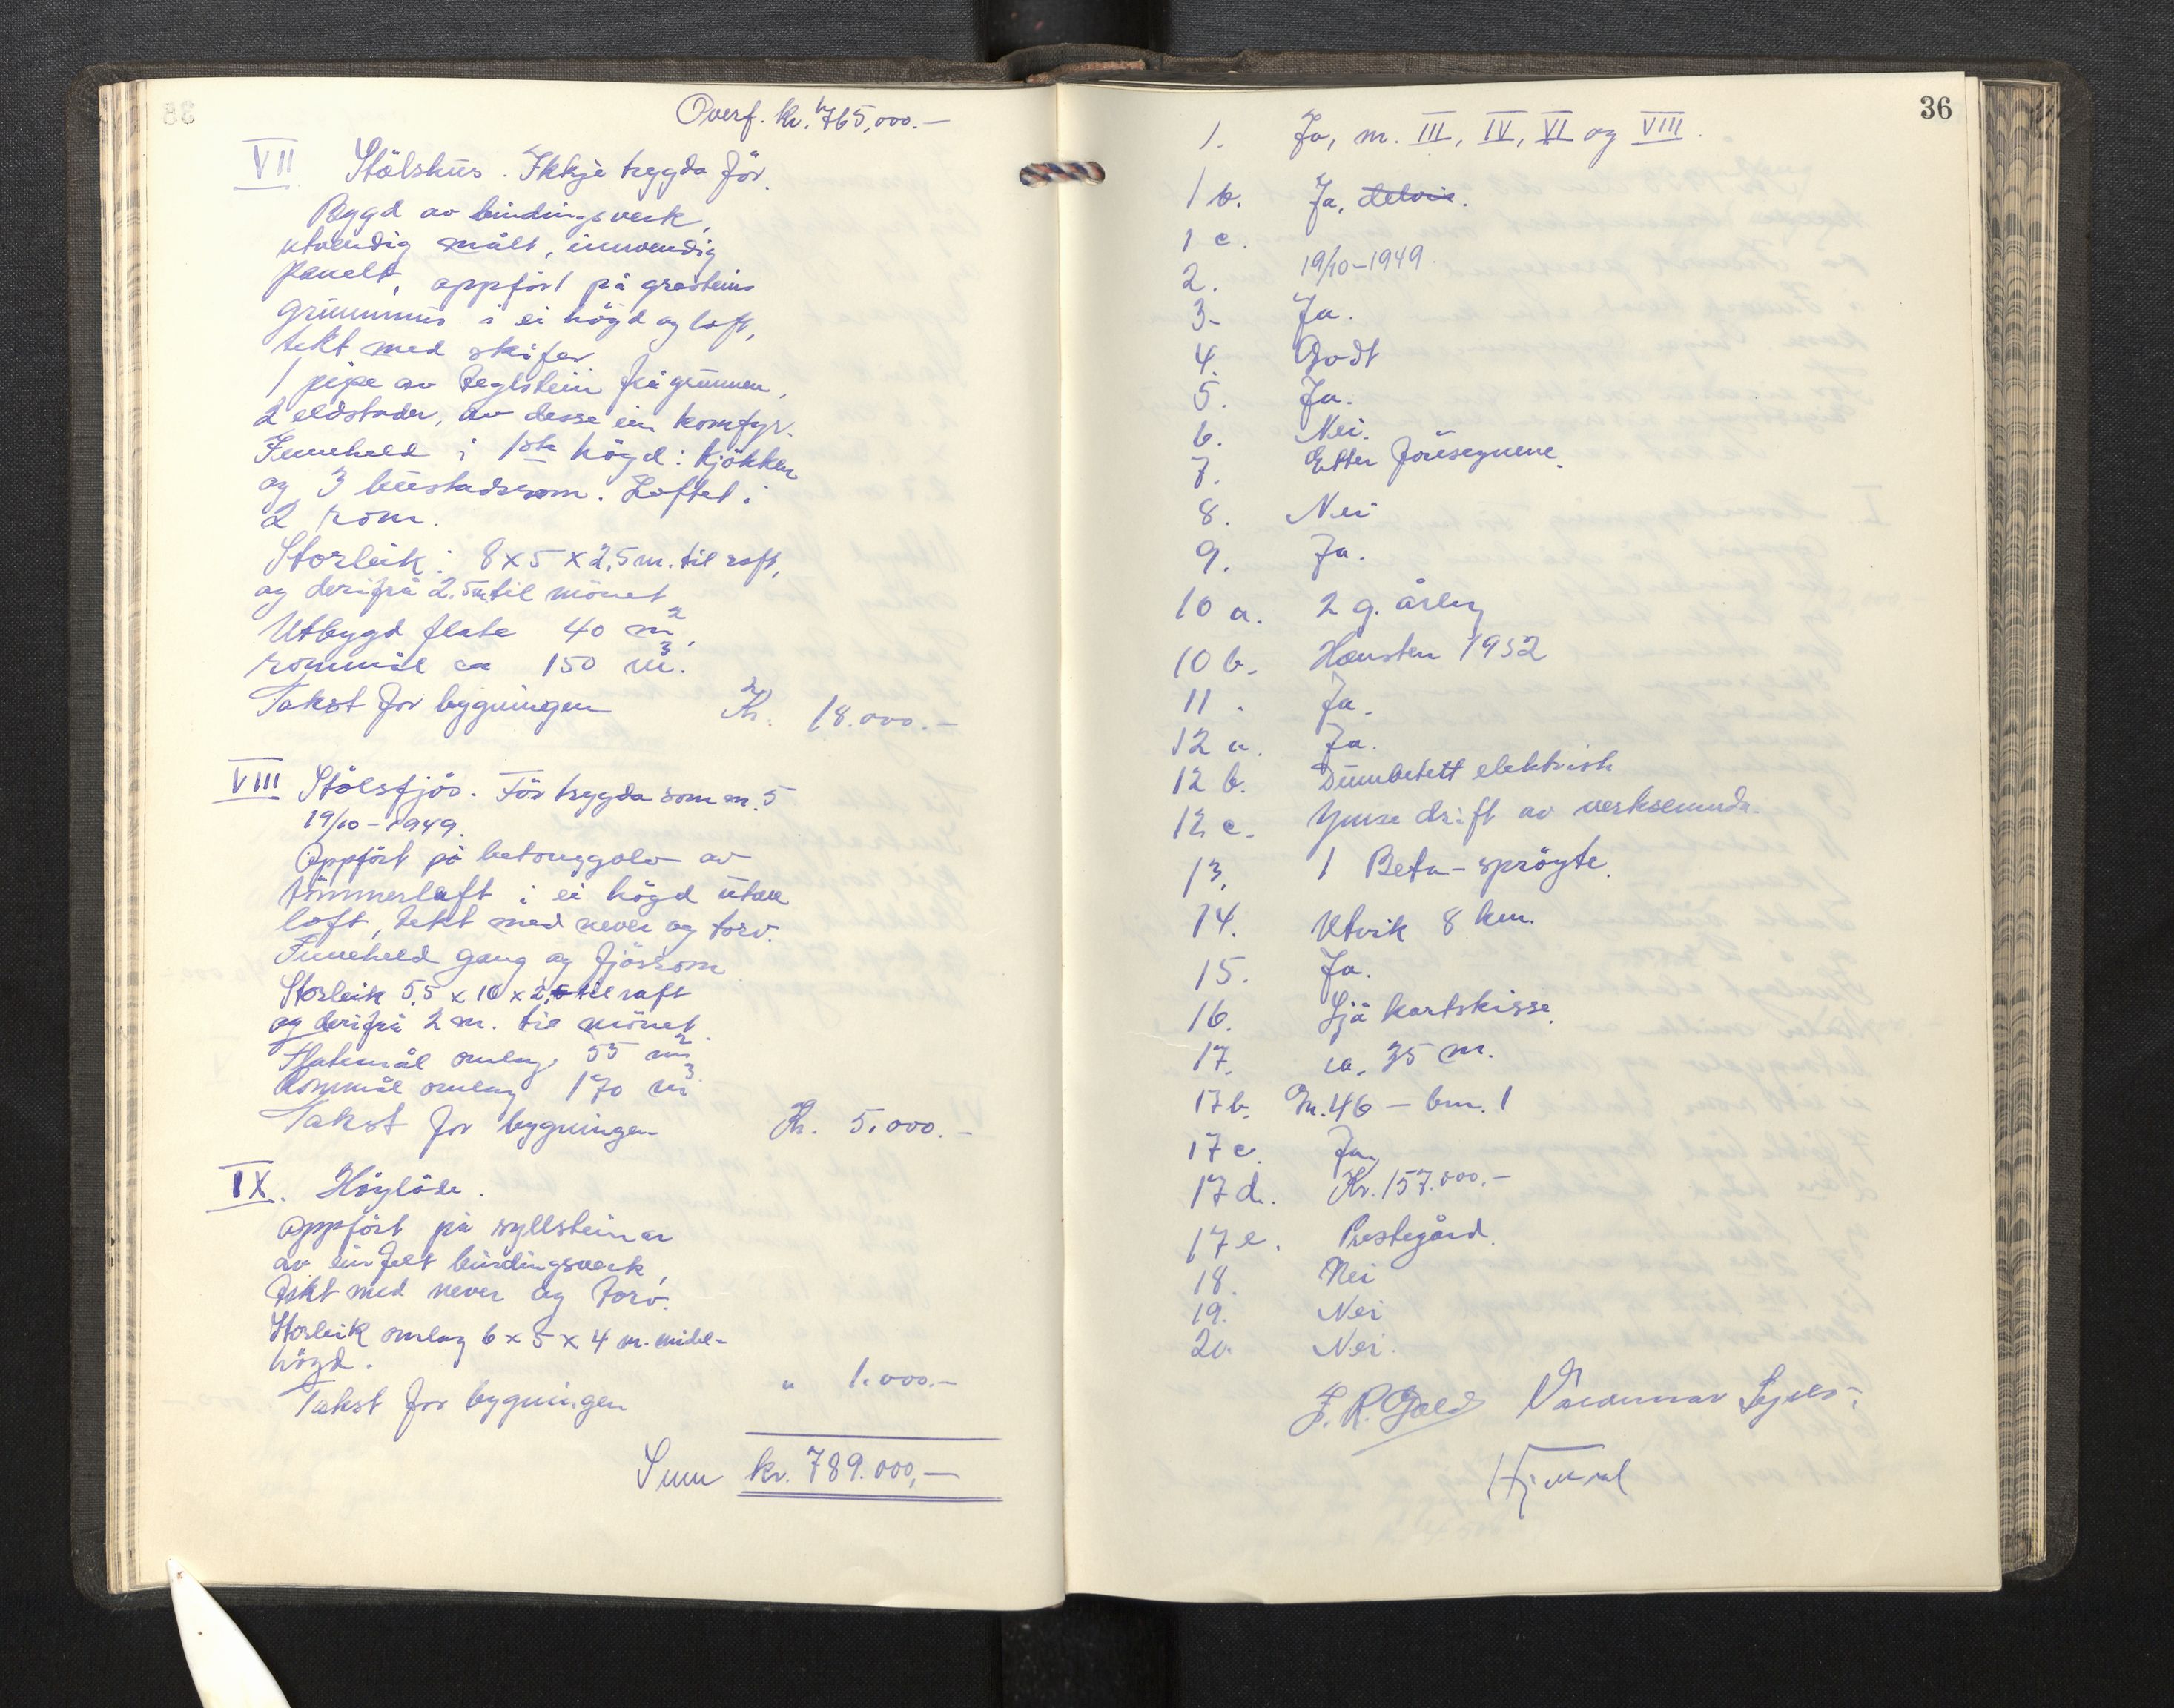 Overf. kr. 765,000.—
VII Stölshus. Ikkje trygda för.
Bygd av bindingsverk,
utvendig målt, innvendig
panelt, oppfört på gråsteins
grunnmur i ei högd og loft,
tekt med skifer.
1 pipe av teglstein frå grunnen,
2 eldstader, av desse ein komfyr.
Inneheld i 1ste högd: kjökken
og 3 bustadsrom. Loftet i
2 rom.
Storleik: 8 x 5 x 2,5 m. til raft,
og derifrå 2.5 m til mönet
Utbygd flate 40 m²,
rommål ca 150 m³.
Takst for bygningen Kr. 18.000.—
VIII Stölsfjös. För trygda som nr. 5
19/10-1949.
Oppfört på betonggolv av
tömmerlaft i ei högd utan
loft, tekt med never og torv.
Inneheld gang og fjösrom
Storleik 5,5 x 10 x 2,5 til raft
og derifrå 2 m. til mönet.
Flatemål omlag 55 m²
Rommål omlag 170 m³
Takst for bygningen Kr. 5.000.—
IX. Höyløde.
Oppfört på syllsteinar
av einfelt bindingsverk,
tekt med never og torv.
Storleik omlag 6 x 5 x 4 m. midel-
högd.
Takst for bygningen " 1.000.—
Sum kr. 789.000,—
36
1. Ja, nr. III, IV, VI og VIII.
1 b. Ja, delvis.
1 c.
2. 19/10-1949.
3. Ja.
4. Godt
5. Ja.
6. Nei.
7. Etter föresegnene.
8. Nei
9. Ja.
10 a. 2 g. årleg
10 b. Hausten 1952
11. Ja.
12 a. Ja.
12 b. elektrisk
12 c. Ymse drift av verksemda.
13. 1 Beta-spröyte.
14. Utvik 8 km.
15. Ja.
16. Sjå kartskisse.
17. ca. 35 m.
17 b. Gn. 46 — bnr. 1
17 c. Ja
17 d. Kr. 157.000.—
17 e. Prestegård.
18. Nei
19. Nei
20. Nei.